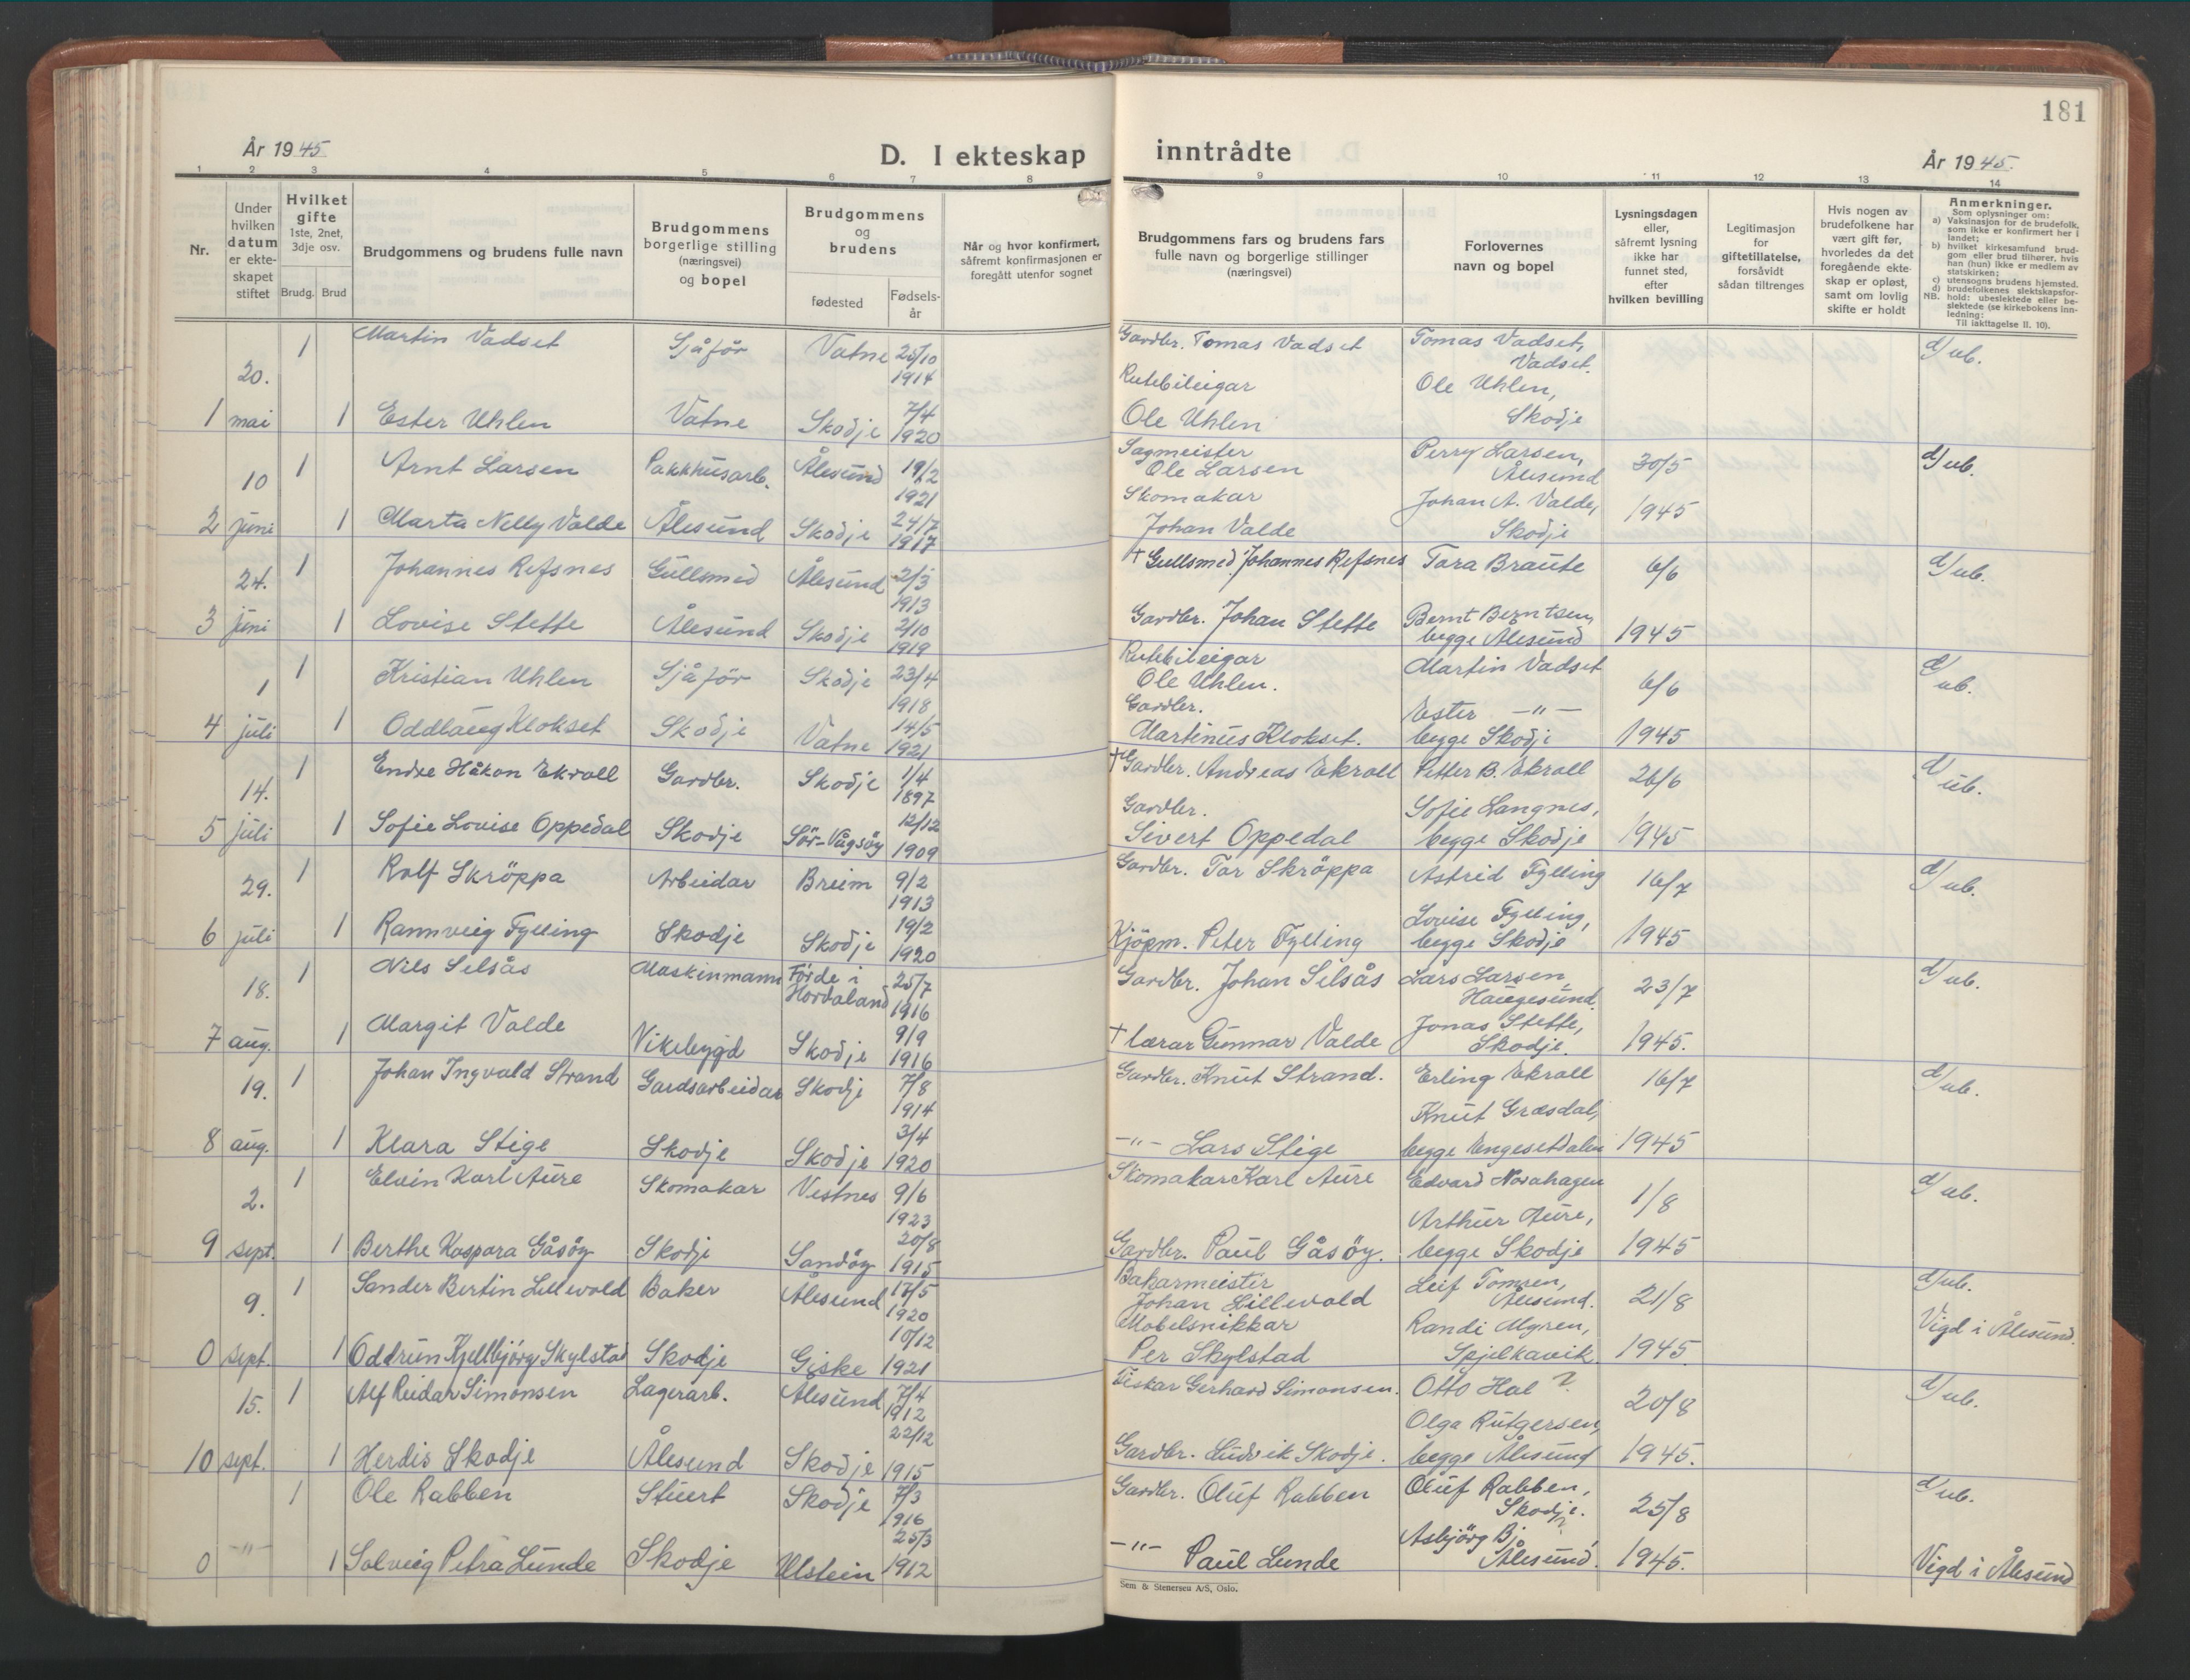 181
År 1945
D. I ekteskap inntrådte
År 1945.
1 2 3 4 5 6 7 8 9 10 11 12 13 14
Nr.
Under hvilken datum er ekte-skapet stiftet
Hvilket gifte 1ste, 2net, 3dje osv.
Brudg. Brud
Brudgommens og brudens fulle navn
Brudgommens borgerlige stilling (næringsvei) og bopel
Brudgommens og brudens
fødested
Fødsels-år
Når og hvor konfirmert, såfremt konfirmasjonen er foregått utenfor sognet
Brudgommens fars og brudens fars fulle navn og borgerlige stillinger (næringsvei)
Forlovernes navn og bopel
Lysningsdagen eller, såfremt lysning ikke har funnet sted, efter hvilken bevilling
Legitimasjon for giftetillatelse, forsåvidt sådan tiltrenges
Hvis nogen av brudefolkene har vært gift før, hvorledes da det foregående ekte-skap er opløst, samt om lovlig skifte er holdt
Anmerkninger.
Som oplysninger om:
a) Vaksinasjon for de brudefolk, som ikke er konfirmert her i landet;
b) hvilket kirkesamfund brud-gom eller brud tilhører, hvis han (hun) ikke er medlem av statskirken;
c) utensogns brudens hjemsted.
d) brudefolkenes slektskapsfor-hold: ubeslektede eller be-slektede (se kirkebokens inn-ledning:
NB. Til iakttagelse II. 10).
20. 1 Martin Vadset Sjåför Vatne 25/10 1914 Gardbr. Tomas Vadset Tomas Vadset, Vadset. d/ub.
1 mai 1 Ester Uhlen Vatne Skodje 7/4 1920 Rutebileigar Ole Uhlen Ole Uhlen, Skodje
10 1 Arnt Larsen Pakkhusarb. Ålesund 19/2 1921 Sagmeister Ole Larsen Perry Larsen, Ålesund 30/5 d/ub.
2 juni 1 Marta Nelly Valde Ålesund Skodje 24/7 1917 Skomakar Johan Valde Johan A. Valde, Skodje 1945
24. 1 Johannes Refsnes Gullsmed Ålesund 2/3 1913 + Gullsmed Johannes Refsnes Tara Braute 6/6 d/ub.
3 juni 1 Lovise Stette Ålesund Skodje 2/10 1919 Gardbr. Johan Stette Bernt Berntsen, begge Ålesund 1945
1 1 Kristian Uhlen Sjåför Skodje 23/4 1918 Rutebileigar Ole Uhlen. Martin Vadset 6/6 d/ub.
4 juli 1 Oddlaug Klokset Skodje Vatne 14/5 1921 Gardbr. Martinus Klokset. Ester -"- begge Skodje 1945
14. 1 Endre Håkon Ekroll Gardbr. Skodje 1/4 1897 + Gardbr. Andreas Ekroll Petter B. Ekroll 26/6 d/ub.
5 juli 1 Sofie Lovise Oppedal Skodje Sör-Vågsöy 12/12 1909 Gardbr. Sivert Oppedal Sofie Langnes, begge Skodje 1945
29. 1 Rolf Skröppa Arbeidar Breim 9/2 1913 Gardbr. Tor Skröppa Astrid Fylling 16/7 d/ub.
6 juli 1 Rannveig Fylling Skodje Skodje 19/2 1920 Kjöpm. Peter Fylling Lovise Fylling, begge Skodje 1945
18. 1 Nils Selsås Maskinmann Förde i Hordaland 25/7 1916 Gardbr. Johan Selsås Lars Larsen, Haugesund 23/7 d/ub.
7 aug. 1 Margit Valde Vikebygd Skodje 9/9 1916 + lærar Gunnar Valde Jonas Stette, Skodje. 1945.
19. 1 Johan Ingvald Strand Gardsarbeidar Skodje 7/8 1914 Gardbr. Knut Strand. Erling Ekroll 16/7 d/ub.
8 aug. 1 Klara Stige Skodje Skodje 3/4 1920 -"- Lars Stige Knut Græsdal, begge Engesetdalen 1945
2. 1 Elvin Karl Aure Skomakar Vestnes 9/6 1923 Skomakar Karl Aure Edvard 1/8 d/ub.
9 sept. 1 Berthe Kaspara Gåsöy Skodje Sandöy 20/8 1915 Gardbr. Paul Gåsöy. Arthur Aure, begge Skodje 1945
9. 1 Sander Bertin Lillevold Baker Ålesund 17/5 1920 Bakarmeister Johan Lillevold Leif Tomren, Ålesund. 21/8 d/ub.
0 sept. 1 Oddrun Kjellbjörg Skylstad Skodje Giske 10/12 1921 Möbelsnikkar Per Skylstad Randi Myren, Spjelkavik 1945 Vigd i Ålesund.
15. 1 Alf Reidar Simonsen Lagerarb. Ålesund 7/4 1912 Fiskar Gerhard Simonsen. Otto Hal ? 20/8 d/ub.
10 sept. 1 Herdis Skodje Ålesund Skodje 22/12 1915 Gardbr. Ludvik Skodje. Olga Rutgersen, begge Ålesund 1945.
1 Ole Rabben Stuert Skodje 7/3 1916 Gardbr. Oluf Rabben Oluf Rabben, Skodje. 25/8 d/ub.
0 -"- 1 Solveig Petra Lunde Skodje Ulstein 25/3 1912 -"- Paul Lunde Asbjörg Bj ? Ålesund. 1945. Vigd i Ålesund
Sem & Stenersen A/S, Oslo.